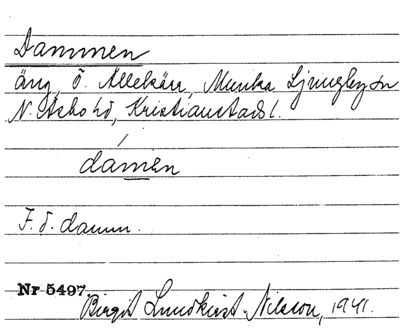 Dammen
äng, Ö. Ällekärr, Munka Ljungby sn
N. Åsbo hd, Kristianstads l.
damen
F. d. damm.
Nr 5497
Birgit Lundkvist-Nilsson, 1941.